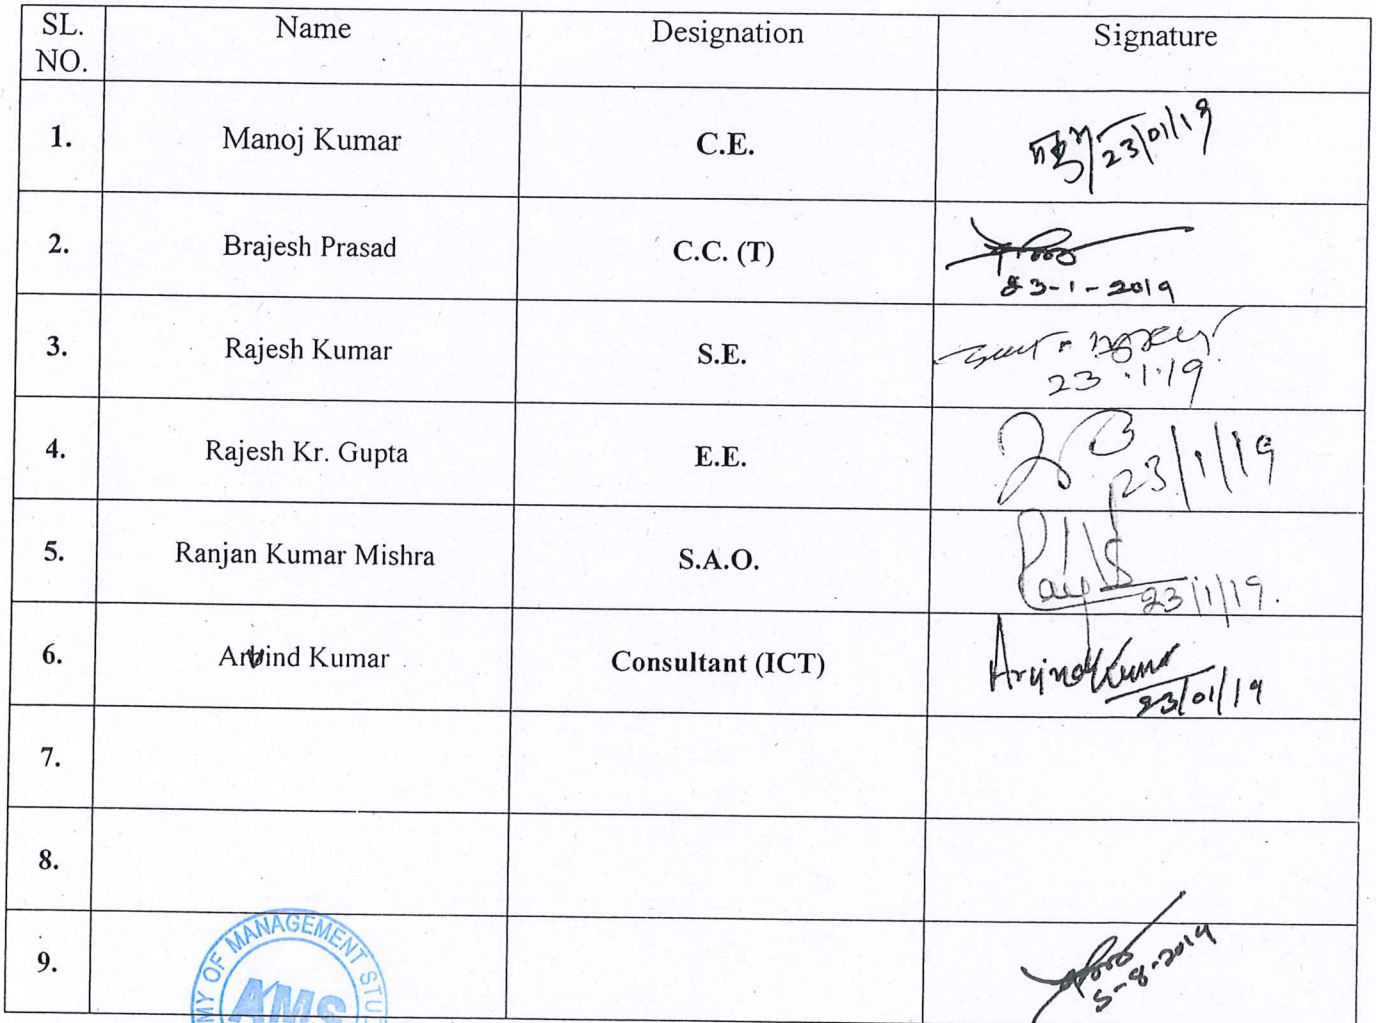 SL. NO. Name Designation Signature
1. Manoj Kumar C.E. 23/01/19
2. Brajesh Prasad C.C. (T)
23-1-2019
3. Rajesh Kumar S.E.
23.1.19
4. Rajesh Kr. Gupta E.E. 23/1/19
5. Ranjan Kumar Mishra S.A.O.
23/1/19.
6. Arvind Kumar Consultant (ICT) Arvind Kumar
23/01/19
7.
8.
9. 5-8-2019
MY OF MANAGEMENT STU
AMS